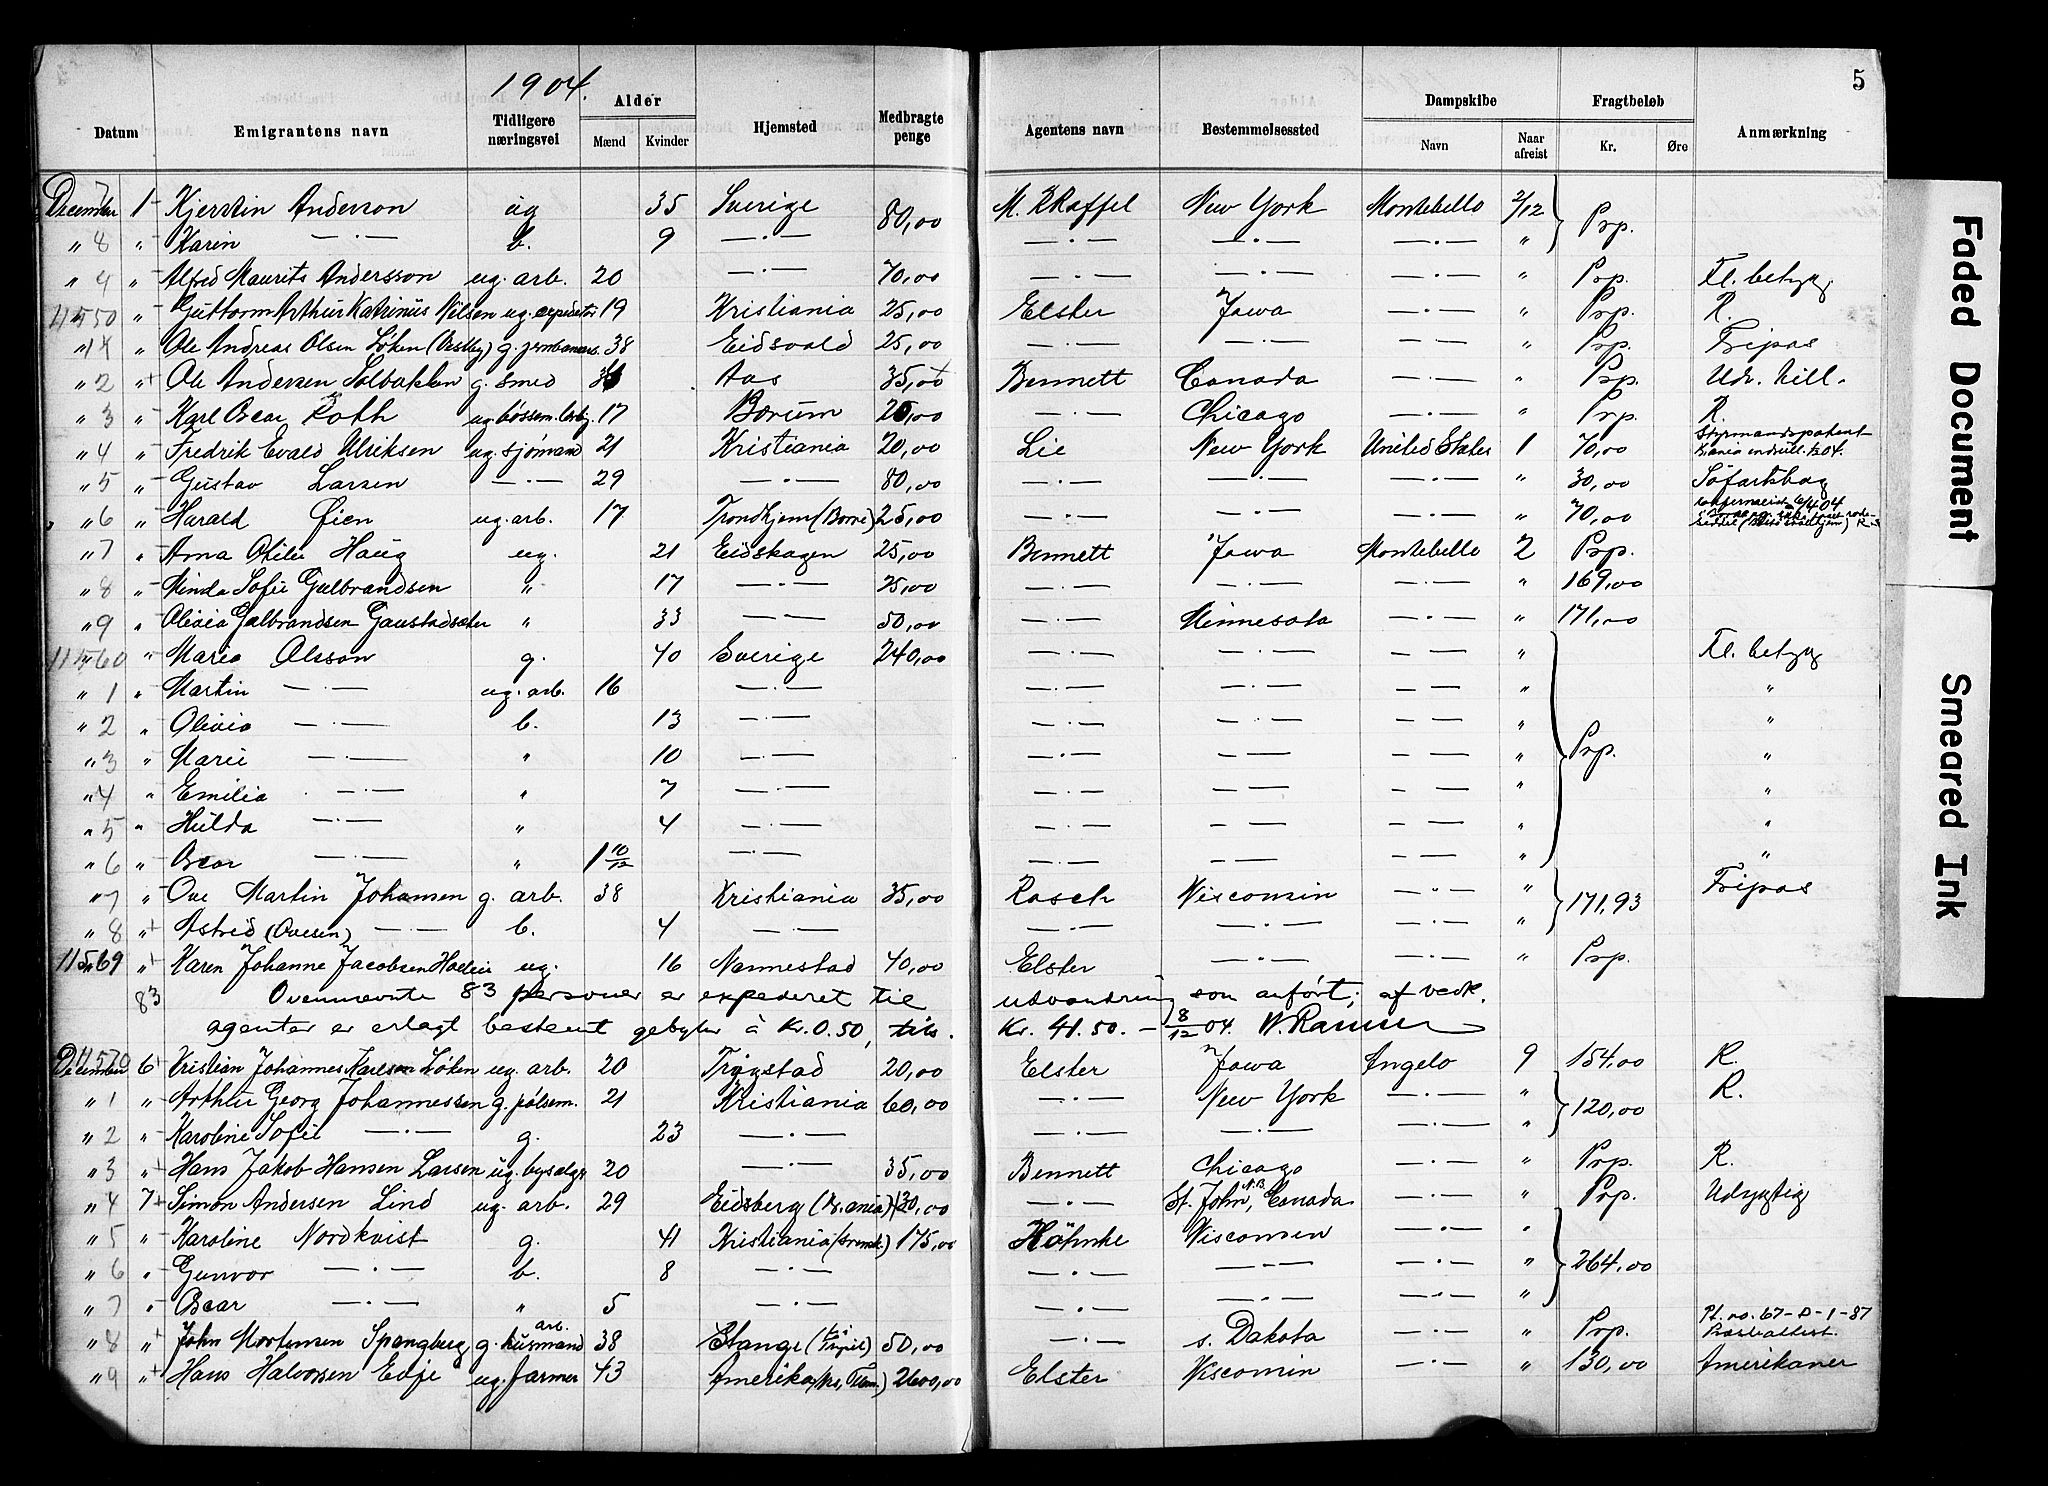 1904.
5
Datum Emigrantens navn Tidligere næringsvei Alder Mænd Kvinder Hjemsted Medbragte penge Agentens navn Bestemmelsessted Dampskibe Navn Naar afreist Fragtbeløb Kr. Øre Anmærkning
December 7 1 Kjerstin Anderson ug 35 Sverige 80,00 M. R Raffel New York Montebello 2/12 Prp.
" 8 " Karin — · — b. 9 — · — — · — — · — — · — "
" 9 " Alfred Maurits Andersson ug. arb. 20 — · — 70,00 — · — — · — — · — " Prp. Fl. betyg
11550 " Guttorm Arthur Katrinus Nilsen ug. expeditør 19 Kristiania 25,00 Elster Jowa — · — " Prp. R.
" 1 " Ole Andreas Olsen Løken (Vestby) g. jernbanearb. 38 Eidsvold 25,00 — · — — · — — · — " Prp. Fripas
" 2 " Ole Andersen Solbakken g. smed Aas 35,00 Bennett Canada — · — " Prp. Udv. till.
" 3 " Karl Oscar Roth ug. bøssem. 17 Bærum 20,00 — · — Chicago — · — " Prp. R.
" 4 " Fredrik Evald Ulriksen ug. sjømand 21 Kristiania 20,00 Lie New York United States 1 70,00 Styrmandspatent K.ania
" 5 " Gustav Larsen — · — 29 — · — 80,00 — · — — · — — · — " 30,00 Søfartsbog
" 6 " Harald Øien ug. arb. 17 Trondhjem 25,00 — · — — · — — · — " 70,00
" 7 " Anna Otilie Haug ug. 21 Eidskogen 25,00 Bennett Jowa Montebello 2 Prp.
" 8 " Minda Sofie Gulbrandsen " 17 — · — 25,00 — · — — · — — · — " 169,00
" 9 " Olivia Gulbrandsen Gaustadsæter " 33 — · — 50,00 — · — Minnesota — · — " 171,00
11560 " Maria Olsson g. 40 Sverige 240,00 — · — — · — — · — " Fl. betyg
" 1 " Martin — · — ug. arb. 16 — · — — · — — — — — " "
" 2 " Olivia — · — b. 13 — · — — · — — — — — " "
" 3 " Marie — · — " 10 — · — — · — — — — — " Prp. "
" 4 " Emilia — · — " 7 — · — — · — — — — — " "
" 5 " Hulda — · — " 4 — · — — · — — — — — " "
" 6 " Oscar — · — " 1 10/12 — · — — · — — — — — " "
" 7 " Ove Martin Johansen g. arb. 38 Kristiania 35,00 Rasch Wisconsin — · — " 171,93 Fripas
" 8 " Astrid (Ovesen) — · — b. 4 — · — — · — — · — — · — "
11569 " Karen Johanne Jacobsen ug. 16 Nannestad 40,00 Elster — · — — · — " Prp.
83 Ovennævnte 83 personer er expederet til udvandring som anført; af vedk.
agenter er erlagt bestemt gebyhr à Kr. 0.50, tils. Kr. 41.50. — 8/12 04.
11570 December 6 Kristian Johannes Karlsen Løken ug. arb. 20 Trøgstad 20,00 Elster Jowa Angelo 9 154,00 R.
" 1 " Arthur Georg Johannessen g. pølsem. 21 Kristiania 60,00 — · — New York — · — " 120,00 R.
" 2 " Karoline Sofie — · — g. 23 — · — — · — — · — — · — "
" 3 " Hans Jakob Hansen Larsen ug. 20 — · — 35,00 Bennett Chicago — · — " Prp. R.
" 4 7 Simon Andersen Lind ug. arb. 29 Eidsberg (K.ania) 130,00 — · — St. John, N.B. Canada — · — " Prp. Udygtig
" 5 " Karoline Nordkvist g. 41 Kristiania (svensk) 175,00 Höhnke Wisconsin — · — "
" 6 " Gunvor — · — b. 8 — · — — · — — · — — · — " 264,00
" 7 " Oscar — · — " 5 — · — — · — — · — — · — "
" 8 " John Mortensen Spangberg g. husmand arb. 38 Stange 50,00 — · — s. Dakota — · — " Prp. Pt. no. 67-D-1-87
" 9 " Hans Halvorsen Edje ug. farmer 43 Amerika 2600,00 Elster Wisconsin — · — " 130,00 Amerikaner
Faded Document
Smeared Ink